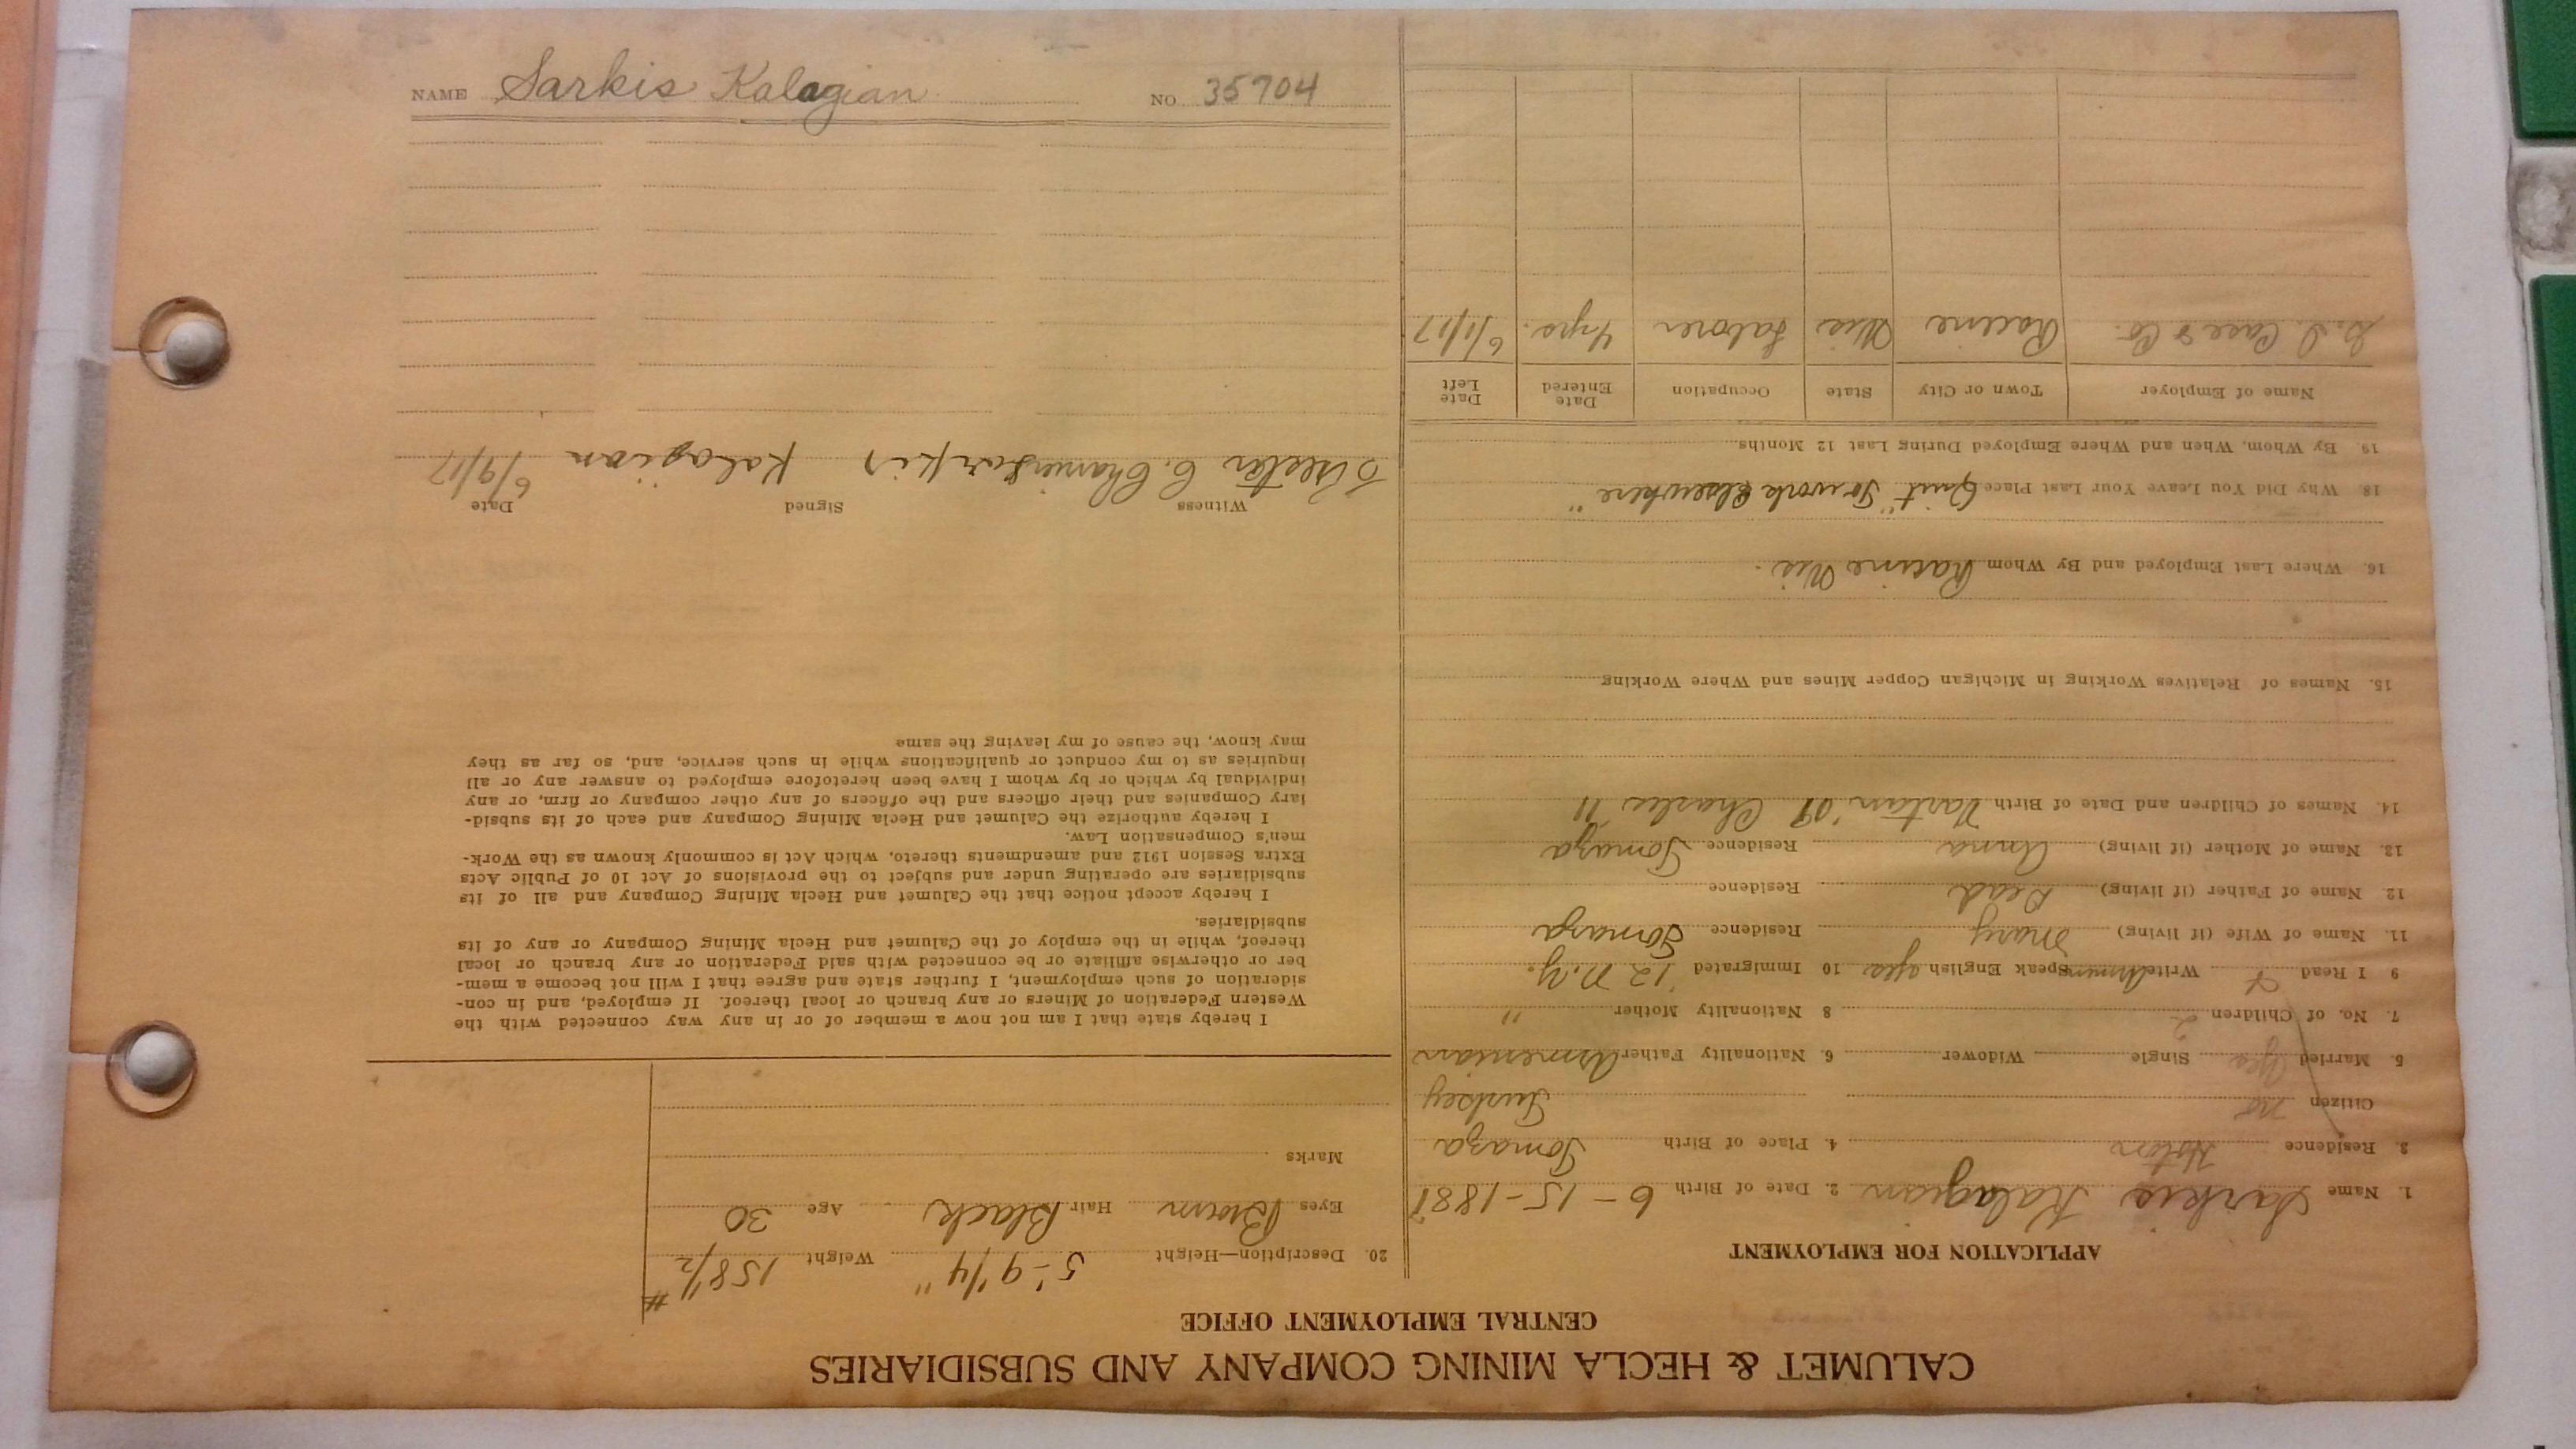 NAME Sarkis Kalagian NO 35704
CALUMET & HECLA MINING COMPANY AND SUBSIDIARIES
CENTRAL EMPLOYMENT OFFICE
APPLICATION FOR EMPLOYMENT
1. Name Sarkis Kalagian 2. Date of Birth 6-15-1887
3. Residence Hotel 4. Place of Birth Tomaza
Citizen no Turkey
5. Married Yes Single Widower 6. Nationality Father Armenian
7. No. of Children 2 8 Nationality Mother "
9 I Read Write Speak English yes 10 Immigrated '12 N.Y.
11. Name of Wife (if living) Mary Residence Tomaza
12. Name of Father (if living) Dead Residence
13. Name of Mother (if living) Anna Residence Tomaza
14. Names of Children and Date of Birth Vartan '07 Charles '11
15. Names of Relatives Working in Michigan Copper Mines and Where Working
16. Where Last Employed and By Whom Racine Wis.
18. Why Did You Leave Your Last Place Quit "To work Elsewhere"
19. By Whom, When and Where Employed During Last 12 Months
Name of Employer Town or City State Occupation Date Entered Date Left
J. I. Case & Co. Racine Wis Laborer 4 yrs. 6/1/17
20. Description—Height 5'-9 1/4" Weight 158 1/2 #
Eyes Brown Hair Black Age 30
Marks
I hereby state that I am not now a member of or in any way connected with the
Western Federation of Miners or any branch or local thereof. If employed, and in con-
sideration of such employment, I further state and agree that I will not become a mem-
ber or otherwise affiliate or be connected with said Federation or any branch or local
thereof, while in the employ of the Calumet and Hecla Mining Company or any of its
subsidiaries.
I hereby accept notice that the Calumet and Hecla Mining Company and all of its
subsidiaries are operating under and subject to the provisions of Act 10 of Public Acts
Extra Session 1912 and amendments thereto, which Act is commonly known as the Work-
men's Compensation Law.
I hereby authorize the Calumet and Hecla Mining Company and each of its subsid-
iary Companies and their officers and the officers of any other company or firm, or any
individual by which or by whom I have been heretofore employed to answer any or all
inquiries as to my conduct or qualifications while in such service, and, so far as they
may know, the cause of my leaving the same
Witness Signed Date
C. Sarkis Kalagian 6/9/17